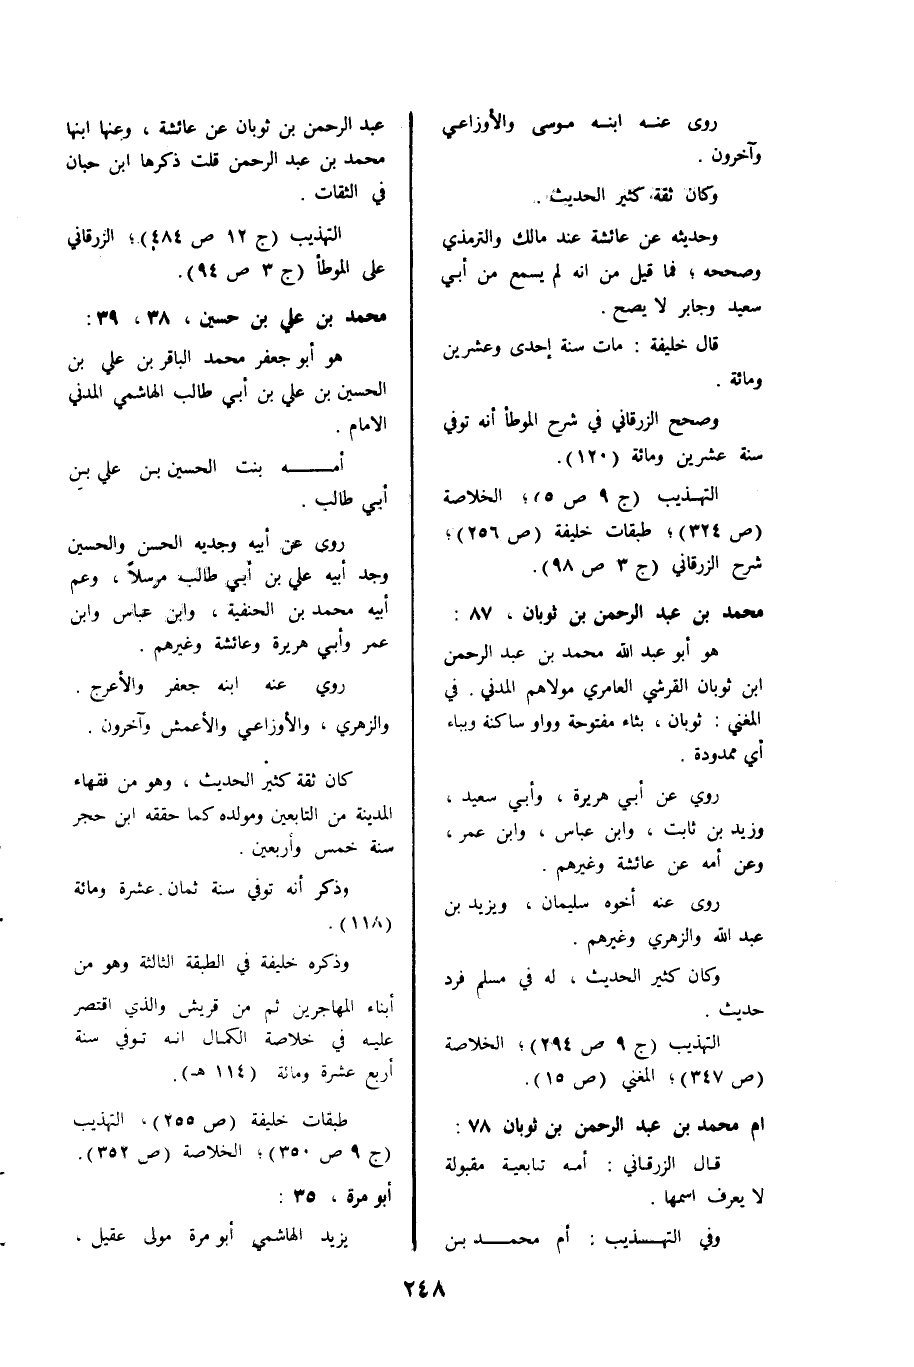 روى عنه ابنه موسى والأوزاعي
وآخرون .
وكان ثقة كثير الحديث .
وحديثه عن عائشة عند مالك والترمذي
وصححه ؛ فما قيل من انه لم يسمع من أبي
سعيد وجابر لا يصح .
قال خليفة : مات سنة إحدى وعشرين
ومائة .
وصحح الزرقاني في شرح الموطأ أنه توفي
سنة عشرين ومائة (١٢٠).
التهذيب (ج ٩ ص ٥)؛ الخلاصة
(ص ٣٢٤)؛ طبقات خليفة (ص ٢٥٦)؛
شرح الزرقاني (ج ٣ ص ٩٨).
محمد بن عبد الرحمن بن ثوبان ، ٨٧ :
هو أبو عبد الله محمد بن عبد الرحمن
ابن ثوبان القرشي العامري مولاهم المدني . في
المغني : ثوبان ، بثاء مفتوحة وواو ساكنة وبباء
أي ممدودة .
روي عن أبي هريرة ، وأبي سعيد ،
وزيد بن ثابت ، وابن عباس ، وابن عمر ،
وعن أمه عن عائشة وغيرهم .
روى عنه أخوه سليمان ، ويزيد بن
عبد الله والزهري وغيرهم .
وكان كثير الحديث ، له في مسلم فرد
حديث .
التهذيب (ج ٩ ص ٢٩٤)؛ الخلاصة
(ص ٣٤٧)؛ المغني (ص ١٥).
ام محمد بن عبد الرحمن بن ثوبان ٧٨ :
قال الزرقاني : أمه تابعية مقبولة
لا يعرف اسمها .
وفي التهـذيب : أم محمد بن
عبد الرحمن بن ثوبان عن عائشة ، وعنها ابنها
محمد بن عبد الرحمن قلت ذكرها ابن حبان
في الثقات .
التهذيب (ج ١٢ ص ٤٨٤)؛ الزرقاني
على الموطأ (ج ٣ ص ٩٤).
محمد بن علي بن حسين ، ٣٨ ، ٣٩ :
هو أبو جعفر محمد الباقر بن علي بن
الحسين بن علي بن أبي طالب الهاشمي المدني
الامام .
أمـــه بنت الحسين بن علي بن
أبي طالب .
روى عن أبيه وجديه الحسن والحسين
وجد أبيه علي بن أبي طالب مرسلاً ، وعم
أبيه محمد بن الحنفية ، وابن عباس وابن
عمر وأبي هريرة وعائشة وغيرهم .
روي عنه ابنه جعفر والأعرج .
والزهري ، والأوزاعي والأعمش وآخرون .
كان ثقة كثير الحديث ، وهو من فقهاء
المدينة من التابعين ومولده كما حققه ابن حجر
سنة خمس وأربعين .
وذكر أنه توفي سنة ثمان عشرة ومائة
(١١٨).
وذكره خليفة في الطبقة الثالثة وهو من
أبناء المهاجرين ثم من قريش والذي اقتصر
عليه في خلاصة الكمال انه توفي سنة
أربع عشرة ومائة (١١٤ هـ).
طبقات خليفة (ص ٢٥٥)، التهذيب
(ج ٩ ص ٣٥٠)؛ الخلاصة (ص ٣٥٢).
أبو مرة ، ٣٥ :
يزيد الهاشمي أبو مرة مولى عقيل ،
٢٤٨